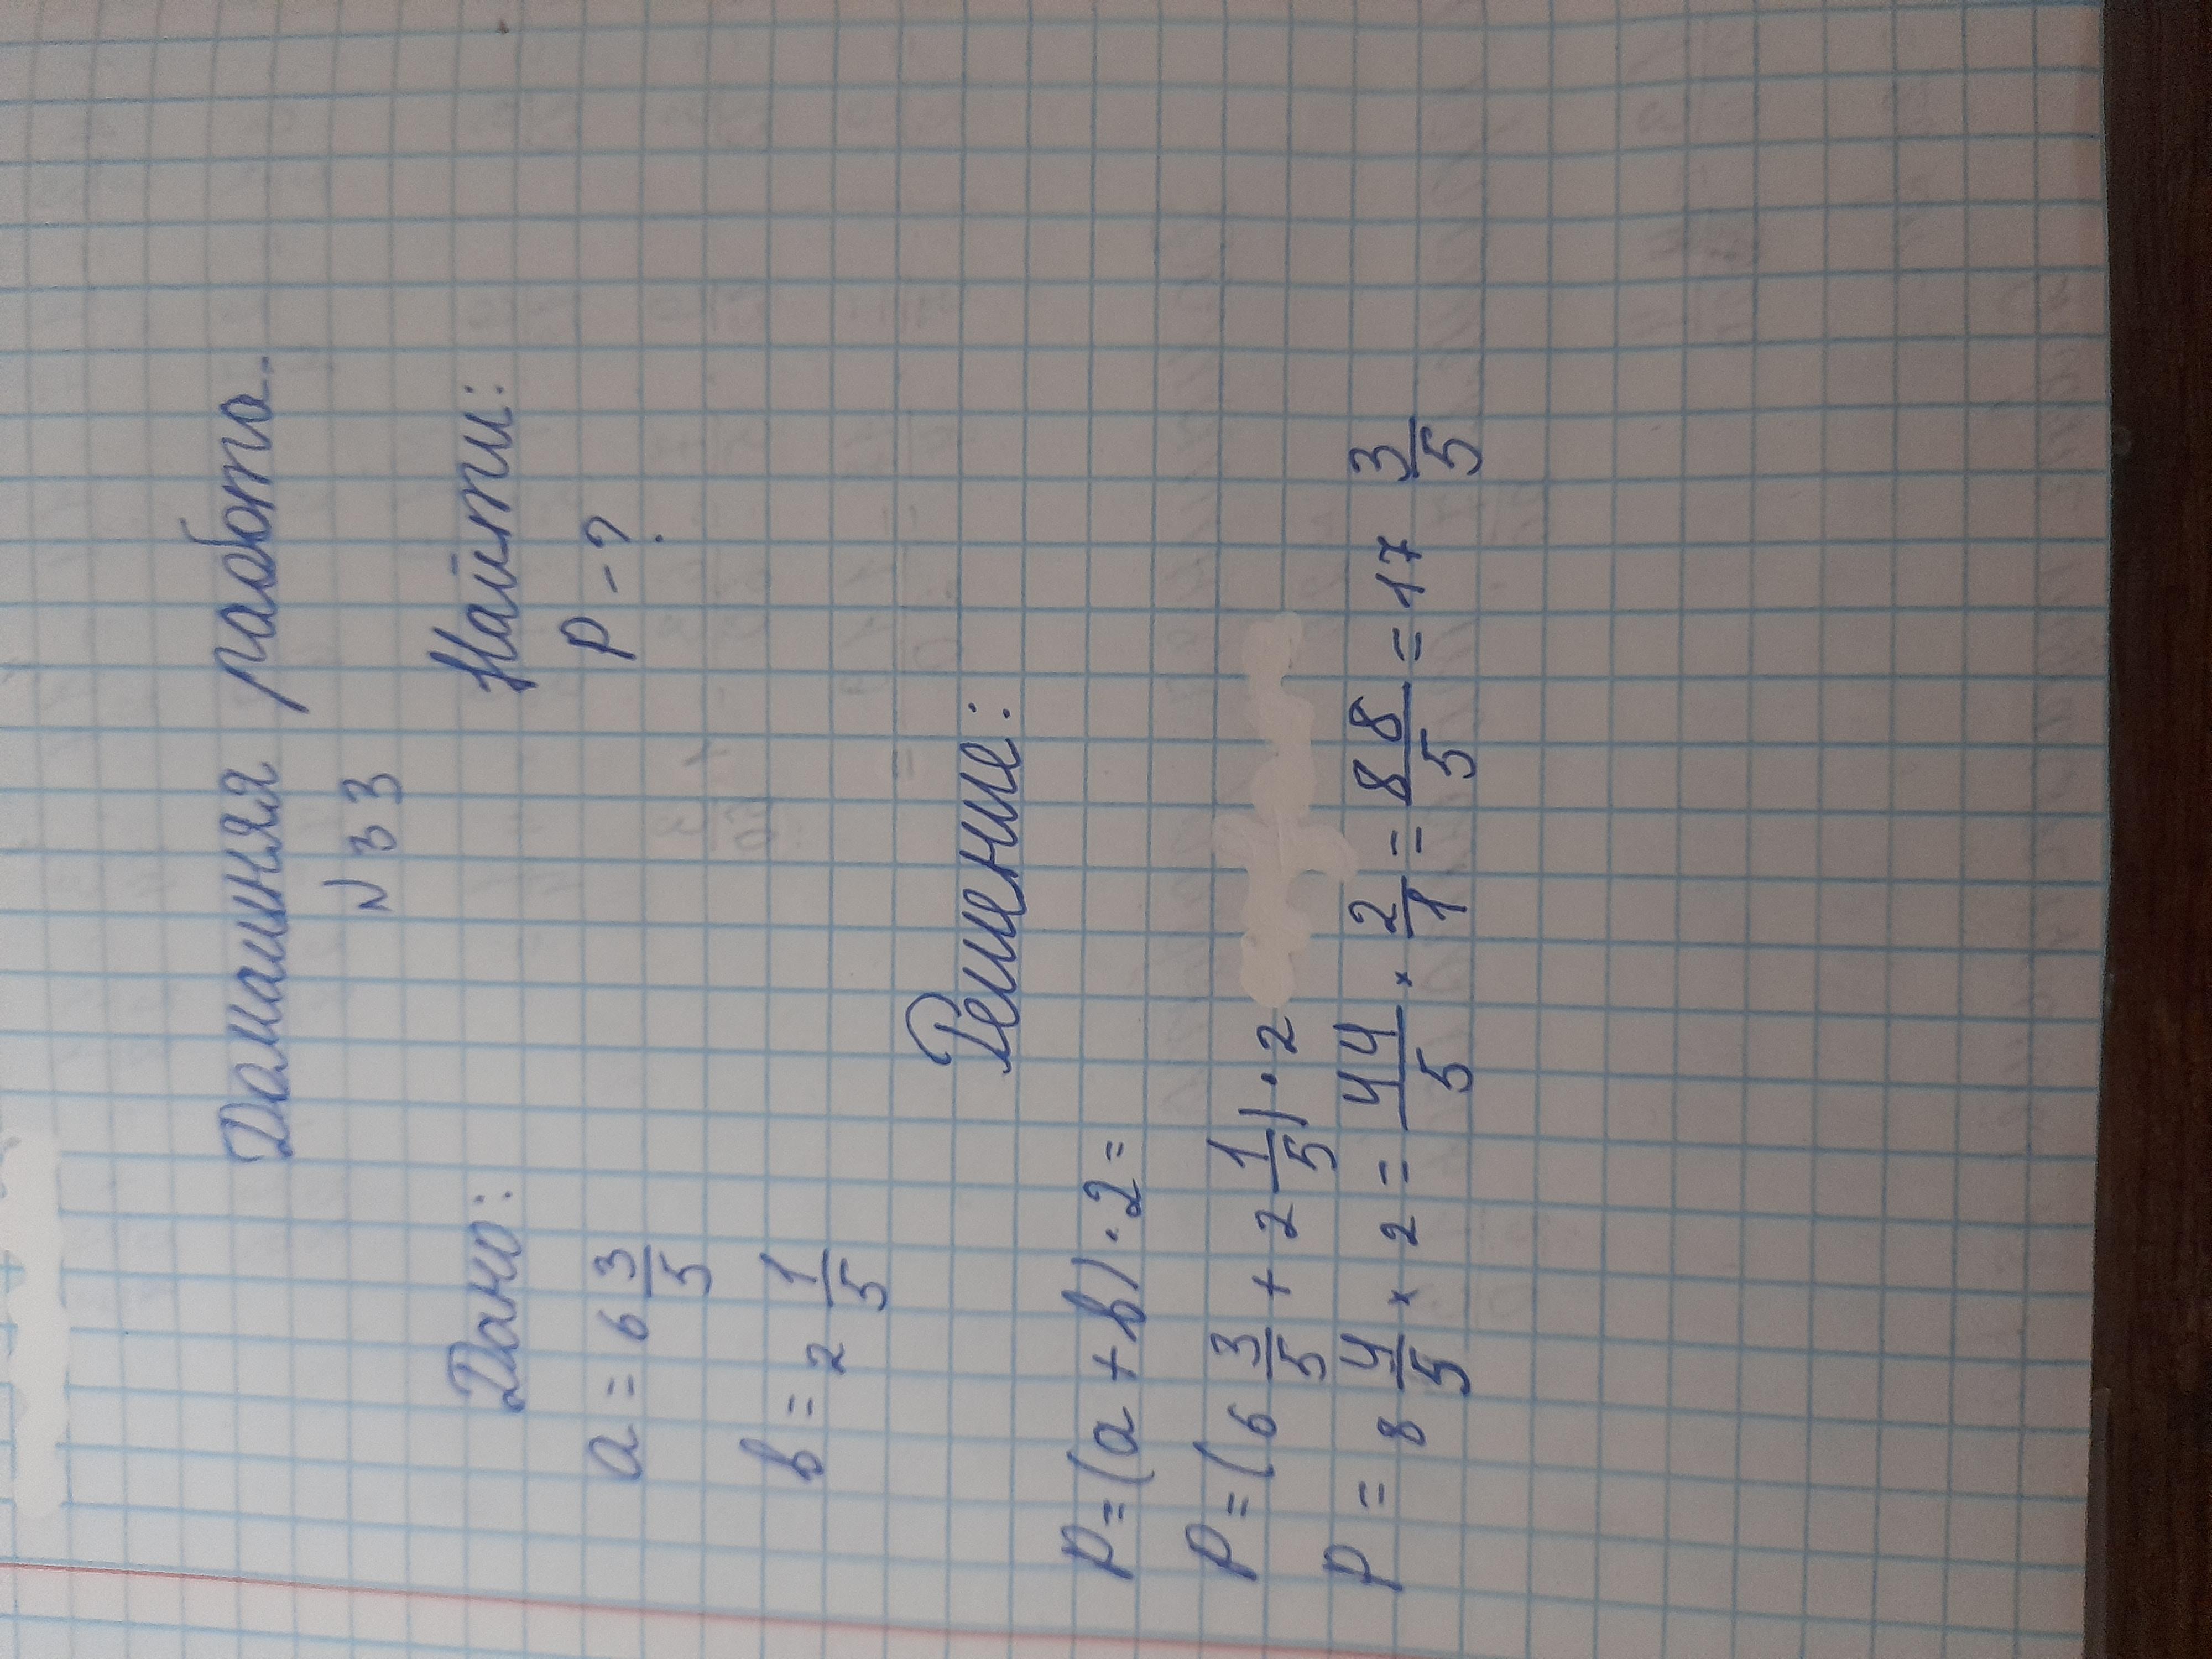 Домашняя работа.
N 33
Дано: Найти:
a = 6 3/5 P - ?
b = 2 1/5
Решение:
P = (a + b) · 2 =
P = (6 3/5 + 2 1/5) · 2
P = 8 4/5 × 2 = 44/5 × 2/1 = 88/5 = 17 3/5